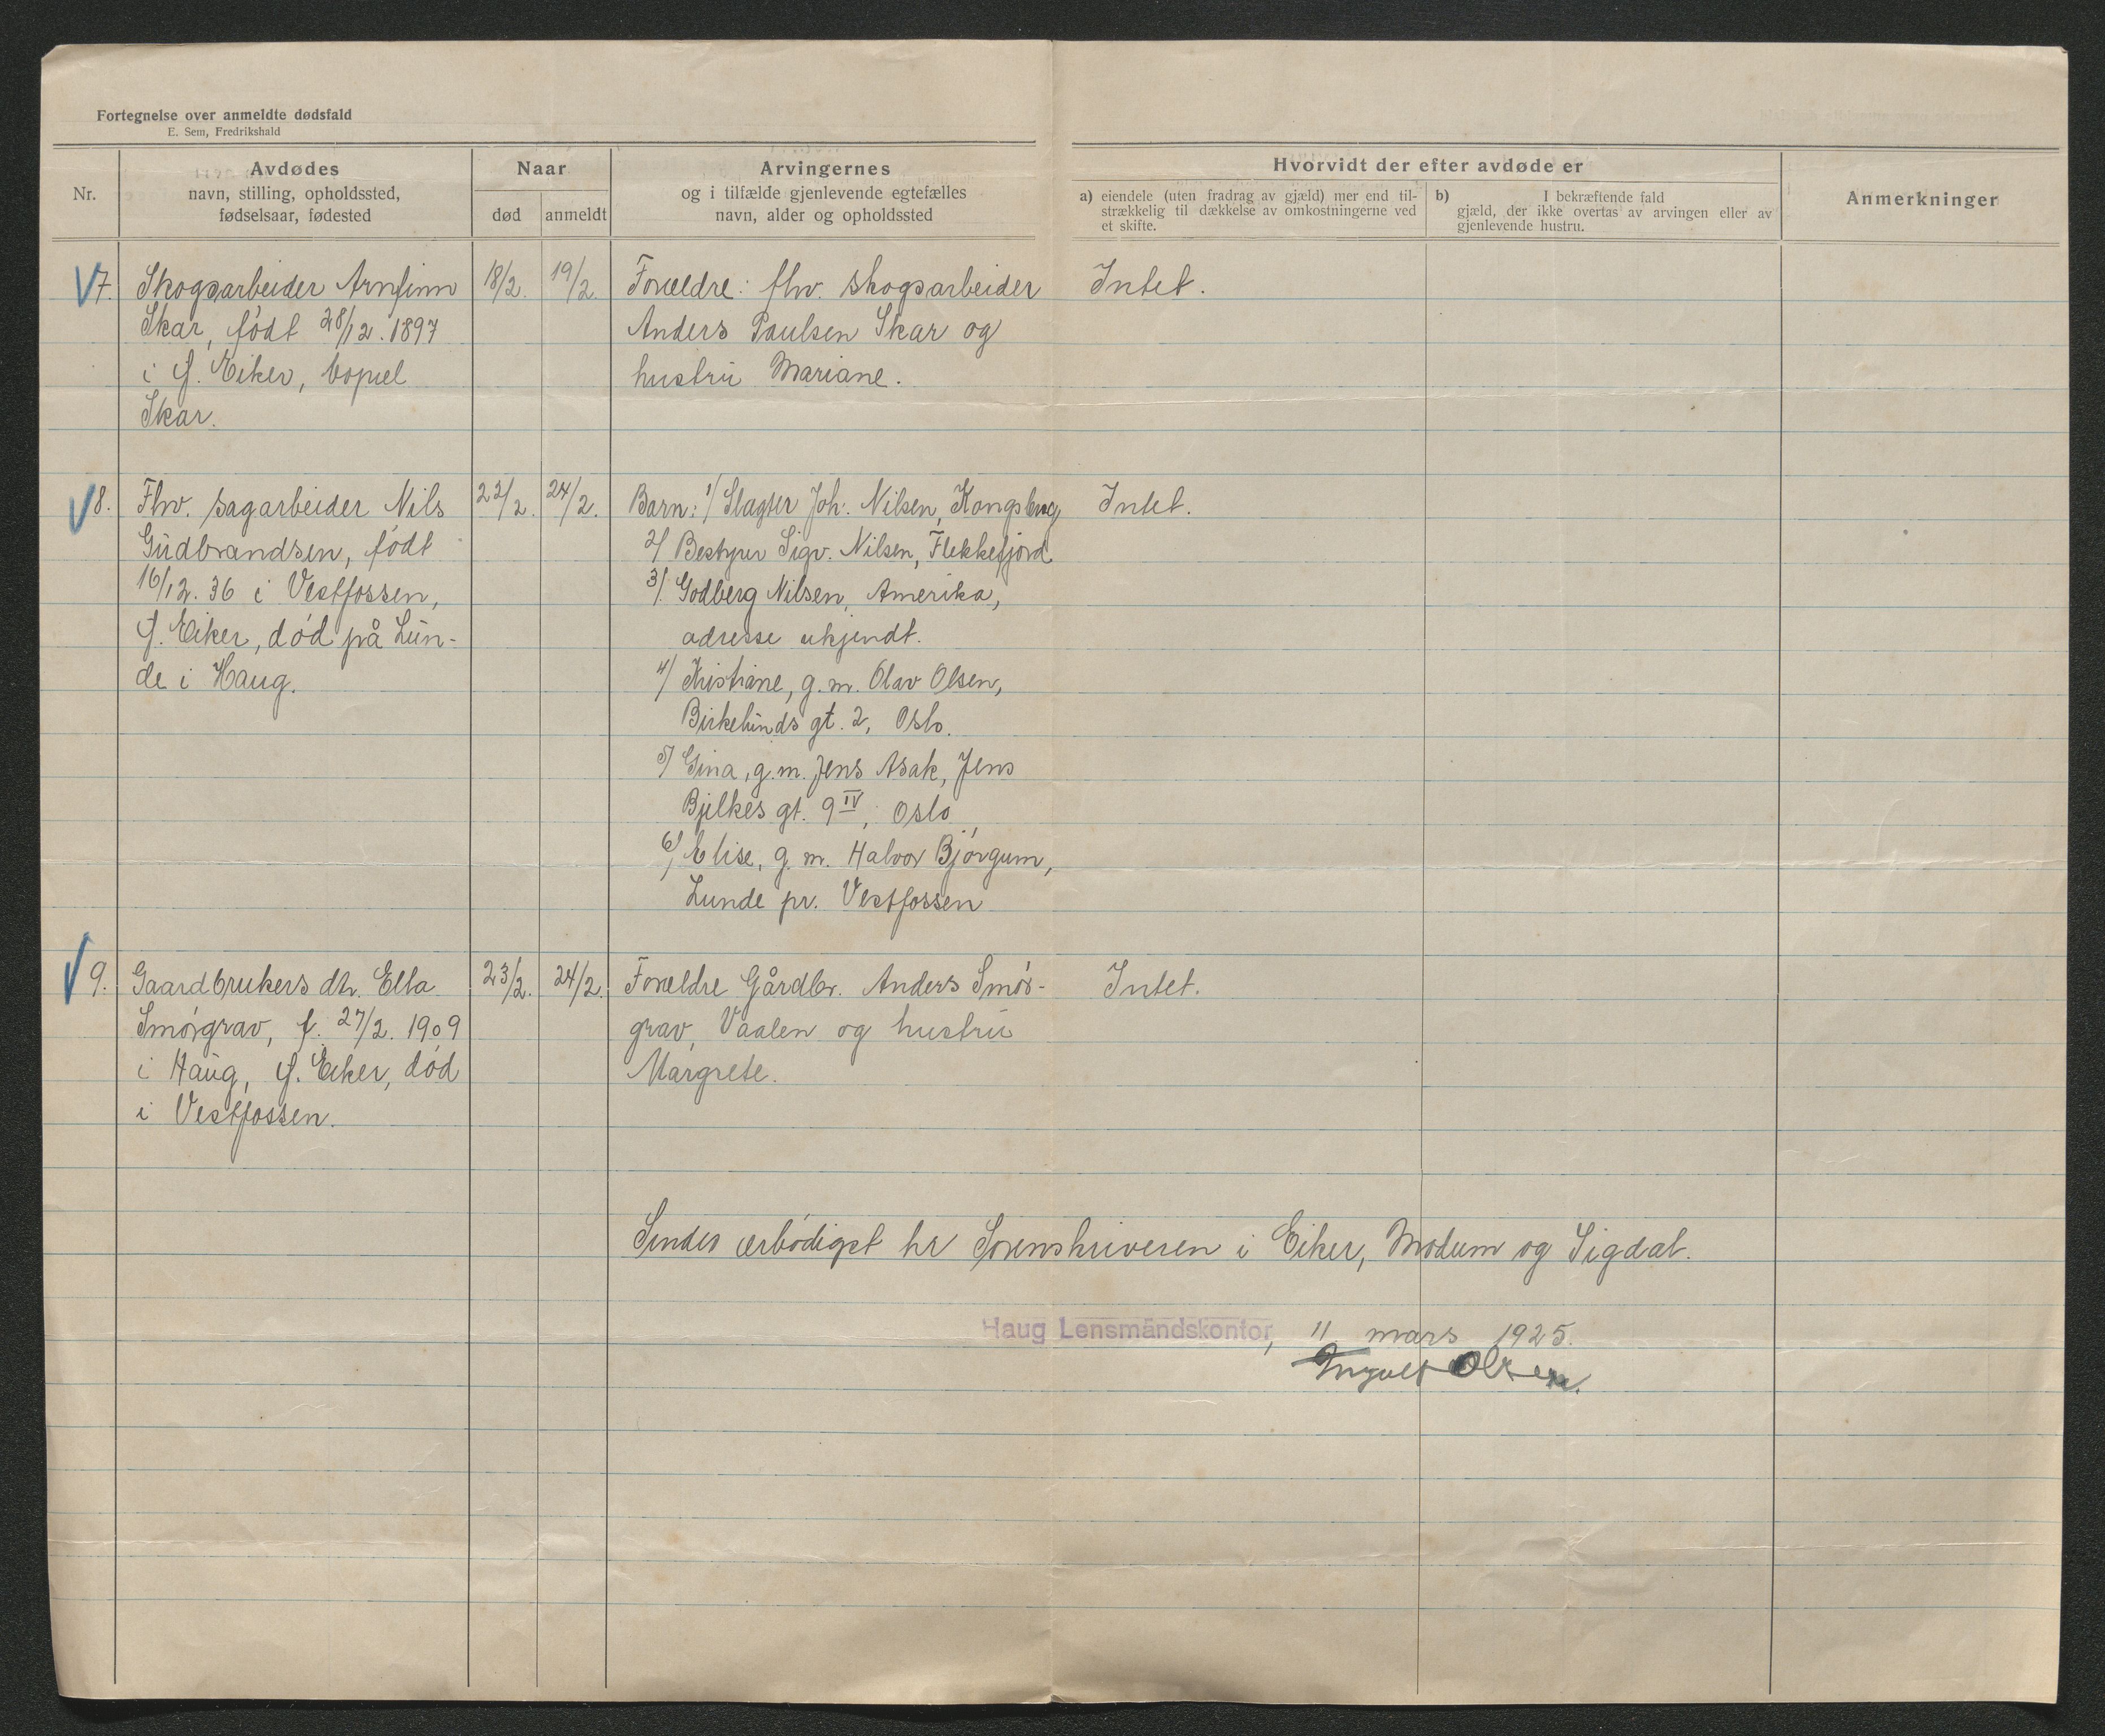 Fortegnelse over anmeldte dødsfald
E. Sem, Fredrikshald
Nr.
Avdødes
navn, stilling, opholdssted,
fødselsaar, fødested
Naar
død
anmeldt
Arvingernes
og i tilfælde gjenlevende egtefælles
navn, alder og opholdssted
Hvorvidt der efter avdøde er
a) eiendele (uten fradrag av gjæld) mer end til-
strækkelig til dækkelse av omkostningerne ved
et skifte.
b) I bekræftende fald
gjæld, der ikke overtas av arvingen eller av
gjenlevende hustru.
Anmerkninger
7.
Skogsarbeider Arnfinn
Skar, født 28/12. 1897
i Ø. Eiker, bopæl
Skar.
18/2.
19/2.
Forældre: fhv. skogsarbeider
Anders Paulsen Skar og
hustru Mariane.
Intet.
8.
Fhv. sagarbeider Nils
Gudbrandsen, født
16/12. 36 i Vestfossen,
Ø. Eiker, død på Lun-
de i Haug.
22/2.
24/2.
Barn: 1/ Slagter Joh. Nilsen, Kongsberg
2/ Bestyrer Sigv. Nilsen, Flekkefjord
3/. Godberg Nilsen, Amerika,
adresse ukjendt.
4/ Kristiane, g.m. Olav Olsen,
Birkelunds gt. 2, Oslo.
5/ Gina, g.m. Jens Asak, Jens
Bjelkes gt. 9 IV, Oslo
6/ Elise, g.m. Halvor Bjørgum,
Lunde pr. Vestfossen
Intet.
9.
Gaardbrukers dtr. Ella
Smørgrav, f. 27/2. 1909
i Haug, Ø. Eiker, død
i Vestfossen.
23/2.
24/2.
Forældre Gårdbr. Anders Smør-
grav, Vaalen og hustru
Margrete.
Intet.
Sendes ærbødigst hr Sorenskriveren i Eiker, Modum og Sigdal.
Haug Lensmandskontor, 11 mars 1925.
Ingolf Olsen.